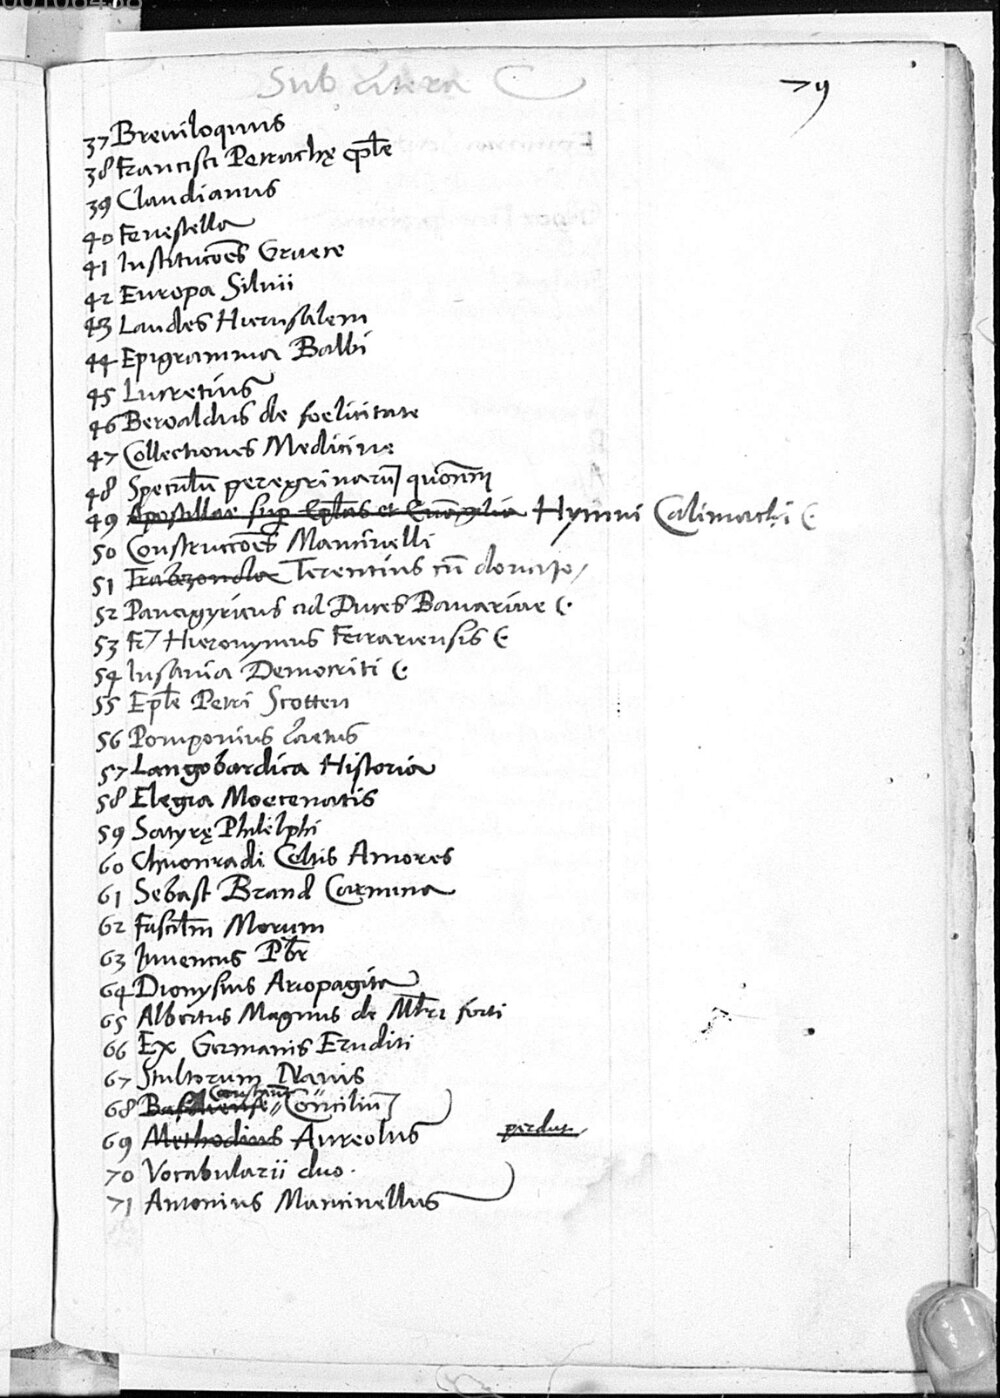 Sub Litera C
79
37 Breviloquus
38 Francisci Petrachę ep̄lē
39 Claudianus
40 Fenestella
41 Institucōēs Graece
42 Europa Silvii
43 Laudes Hierusalem
44 Epigramma Balbi
45 Lucretius
46 Beroaldus de foelicitate
47 Collectiones Medicinę
48 Speculū peregrinarū quōnm̄
49 Apostillae sup̄ Ep̄las et Evāgelia Hymni Calimachi (·
50 Construccōēs Mancinelli
51 Trabezondae Terentius cū donato
52 Panegyricus ad Duces Bavariae (·
53 Fr Hieronymus Ferrariensis (·
54 Insania Democriti (·
55 Ep̄lē Petri Scotten
56 Pomponius Laetus
57 Langobardica Historia
58 Elegia Moecenatis
59 Satyrę Philelphi
60 Chuonradi Celtis Amores
61 Sebast Brand Carmina
62 Fascl̄m Morum
63 Juvencus Pb̄r
64 Dionysius Ariopagita
65 Albertus Magnus de Ml̄ri forti
66 Ex Germanis Eruditi
67 Stultorum Navis
68 Basiliense Constant Conciliū
69 Methodius Aureolus perdit.
70 Vocabularii duo.
71 Antonius Mancinellus